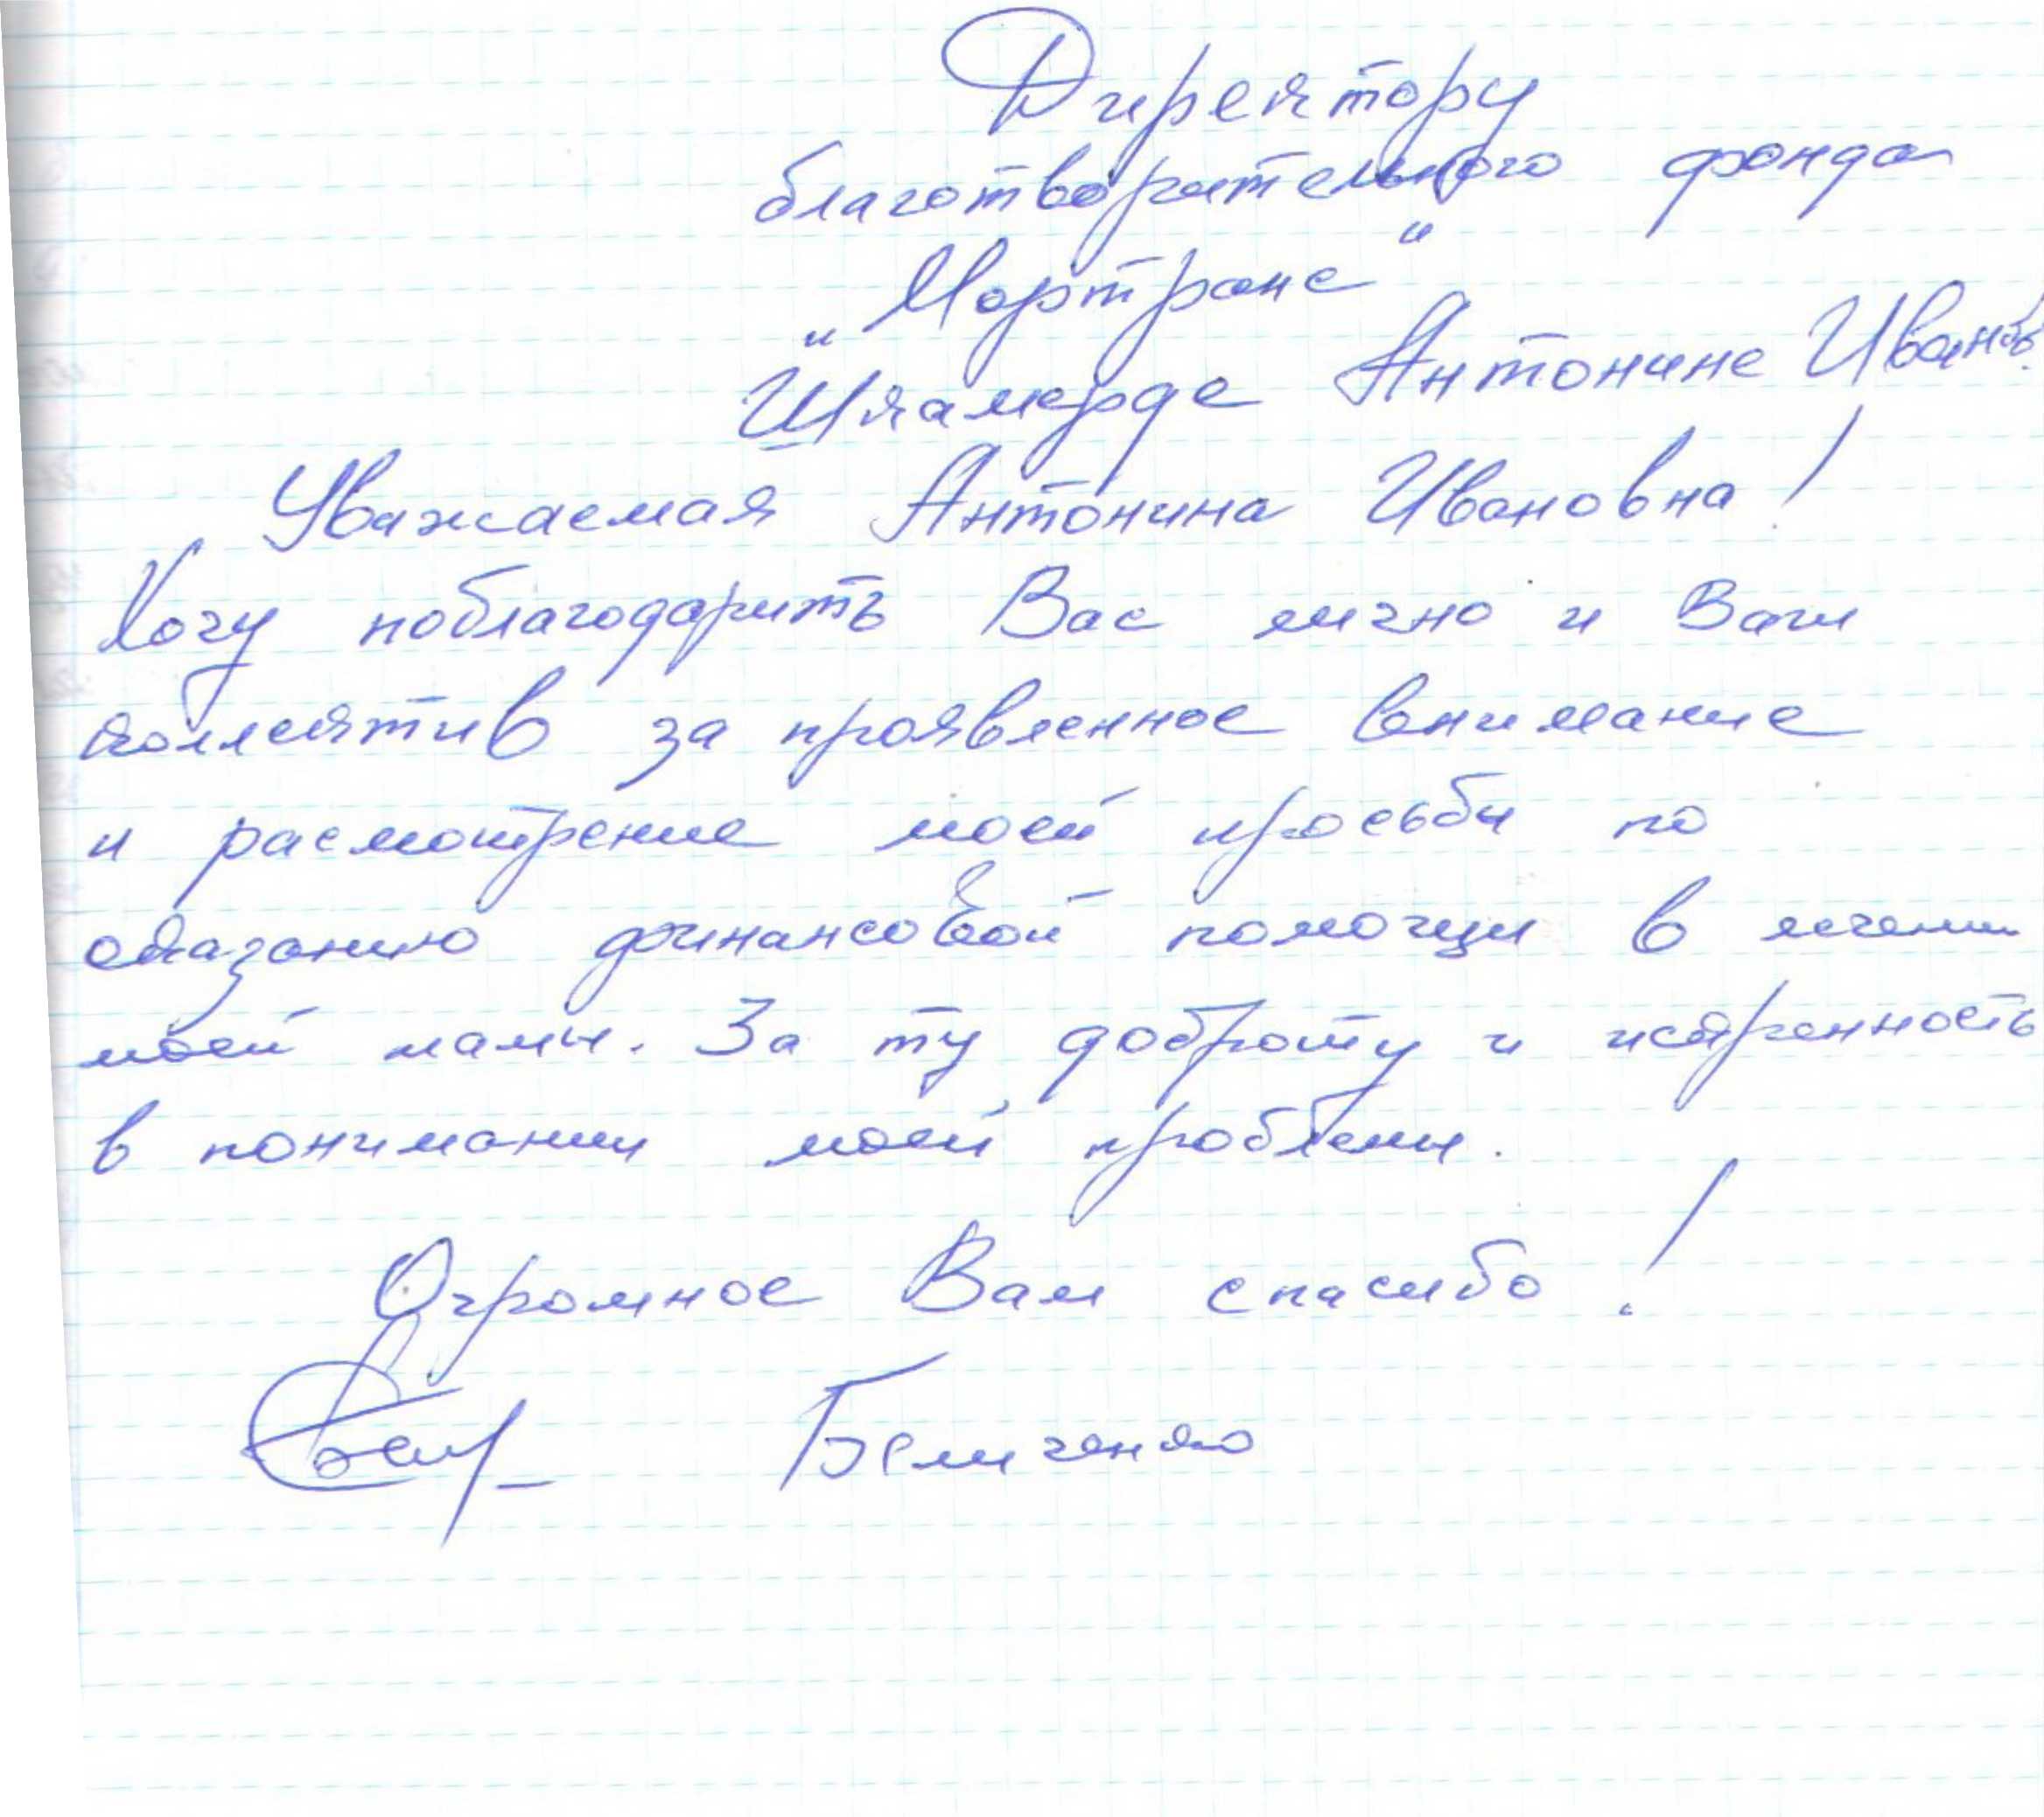 Директору
благотворительного фонда
„Мортранс“
Шкамерде Антонине Иванов.
Уважаемая Антонина Ивановна!
Хочу поблагодарить Вас лично и Ваш
коллектив за проявленное внимание
и расмотрение моей просьбы по
оказанию финансовой помощи в лечении
моей мамы. За ту доброту и искренность
в понимании моей проблемы.
Огромное Вам спасибо!
Беличенко